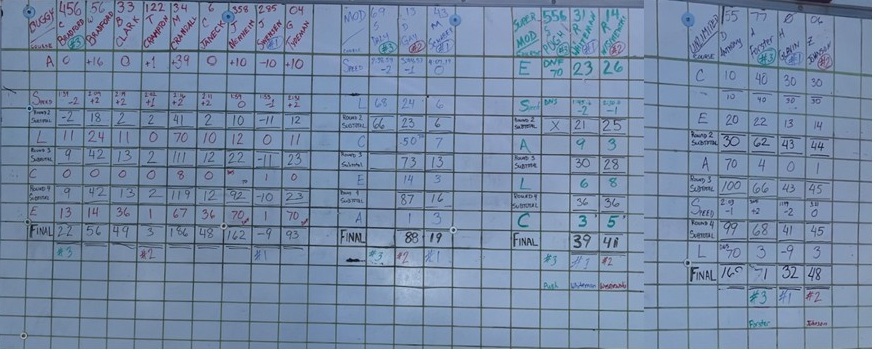 BUGGY 456 56 33 122 34 6 358 285 04
B W B T M C J J G
BRADFORD BRADFORD CLARK CRAMPTON CRANDALL JANECK NEWHEIM TUDEMAN
#3 #2 #1
COURSE
A 0 +16 0 +1 +39 0 +10 -10 +10
SPEED -2 +2 +2 +1 +2 +2 0 -1 +2
ROUND 2 SUBTOTAL -2 18 2 2 41 2 10 -11 12
L 11 24 11 0 70 10 12 0 11
ROUND 3 SUBTOTAL 9 42 13 2 111 12 22 -11 23
C 0 0 0 0 8 0 1 0
ROUND 4 SUBTOTAL 9 42 13 2 119 12 92 -10 23
E 13 14 36 1 67 36 70 1 70
FINAL 22 56 49 3 186 48 162 -9 93
#3 #2 #1
MOD 69 13 43
S D M
#3 #2 #1
COURSE
SPEED -2 -1
L 68 24 6
ROUND 2 SUBTOTAL 66 23 6
C 50 7
ROUND 3 SUBTOTAL 73 13
E 14 3
ROUND 4 SUBTOTAL 87 16
A 1 3
FINAL 88 19
#3 #2 #1
SUPER MOD 556 31 14
S R R
PUGH WHITEMAN
#3 #1 #2
COURSE
E DNF 70 23 26
SPEED DNS -2 -1
ROUND 2 SUBTOTAL X 21 25
A 9 3
ROUND 3 SUBTOTAL 30 28
L 6 8
ROUND 4 SUBTOTAL 36 36
C 3 5
FINAL 39 41
#3 #1 #2
Pugh Whiteman
UNLIMITED 55 77 0 06
D A H Z
Anthony Forster JOHNSON
#3 #1 #2
COURSE
C 10 40 30 30
10 40 30 30
E 20 22 13 14
ROUND 2 SUBTOTAL 30 62 43 44
A 70 4 0 1
ROUND 3 SUBTOTAL 100 66 43 45
SPEED -1 +2 -2 0
ROUND 4 SUBTOTAL 99 68 41 45
L 70 3 -9 3
FINAL 169 71 32 48
#3 #1 #2
Forster Johnson